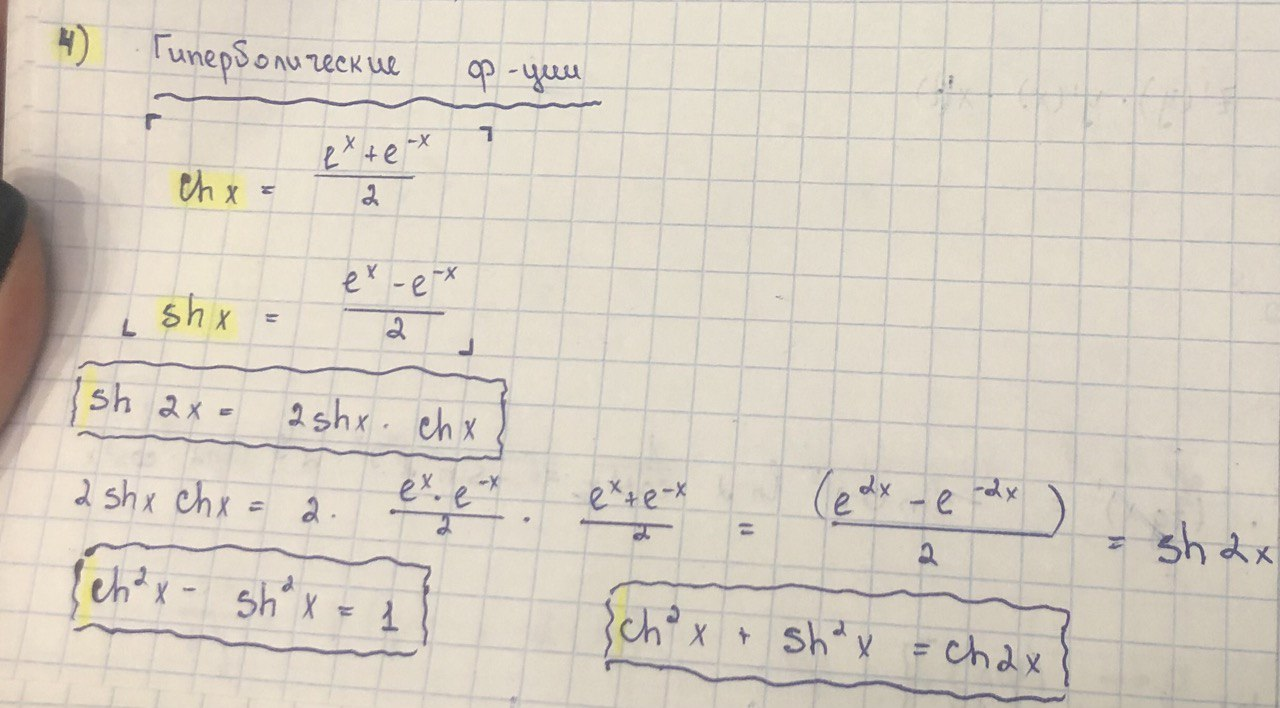 4) Гиперболические ф-ции
ch x = (e^x + e^-x)/2
sh x = (e^x - e^-x)/2
sh 2x = 2shx · chx
2 shx chx = 2 · (e^x · e^-x)/2 · (e^x + e^-x)/2 = (e^2x - e^-2x)/2 = sh 2x
ch²x - sh²x = 1
ch²x + sh²x = ch2x